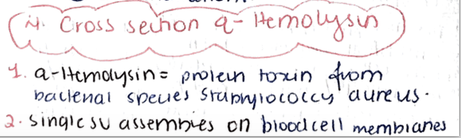 14. Cross section α-Hemolysin
1. α-Hemolysin = protein toxin from
bacterial species Staphylococcy aureus.
2. single su assembies on blood cell membranes